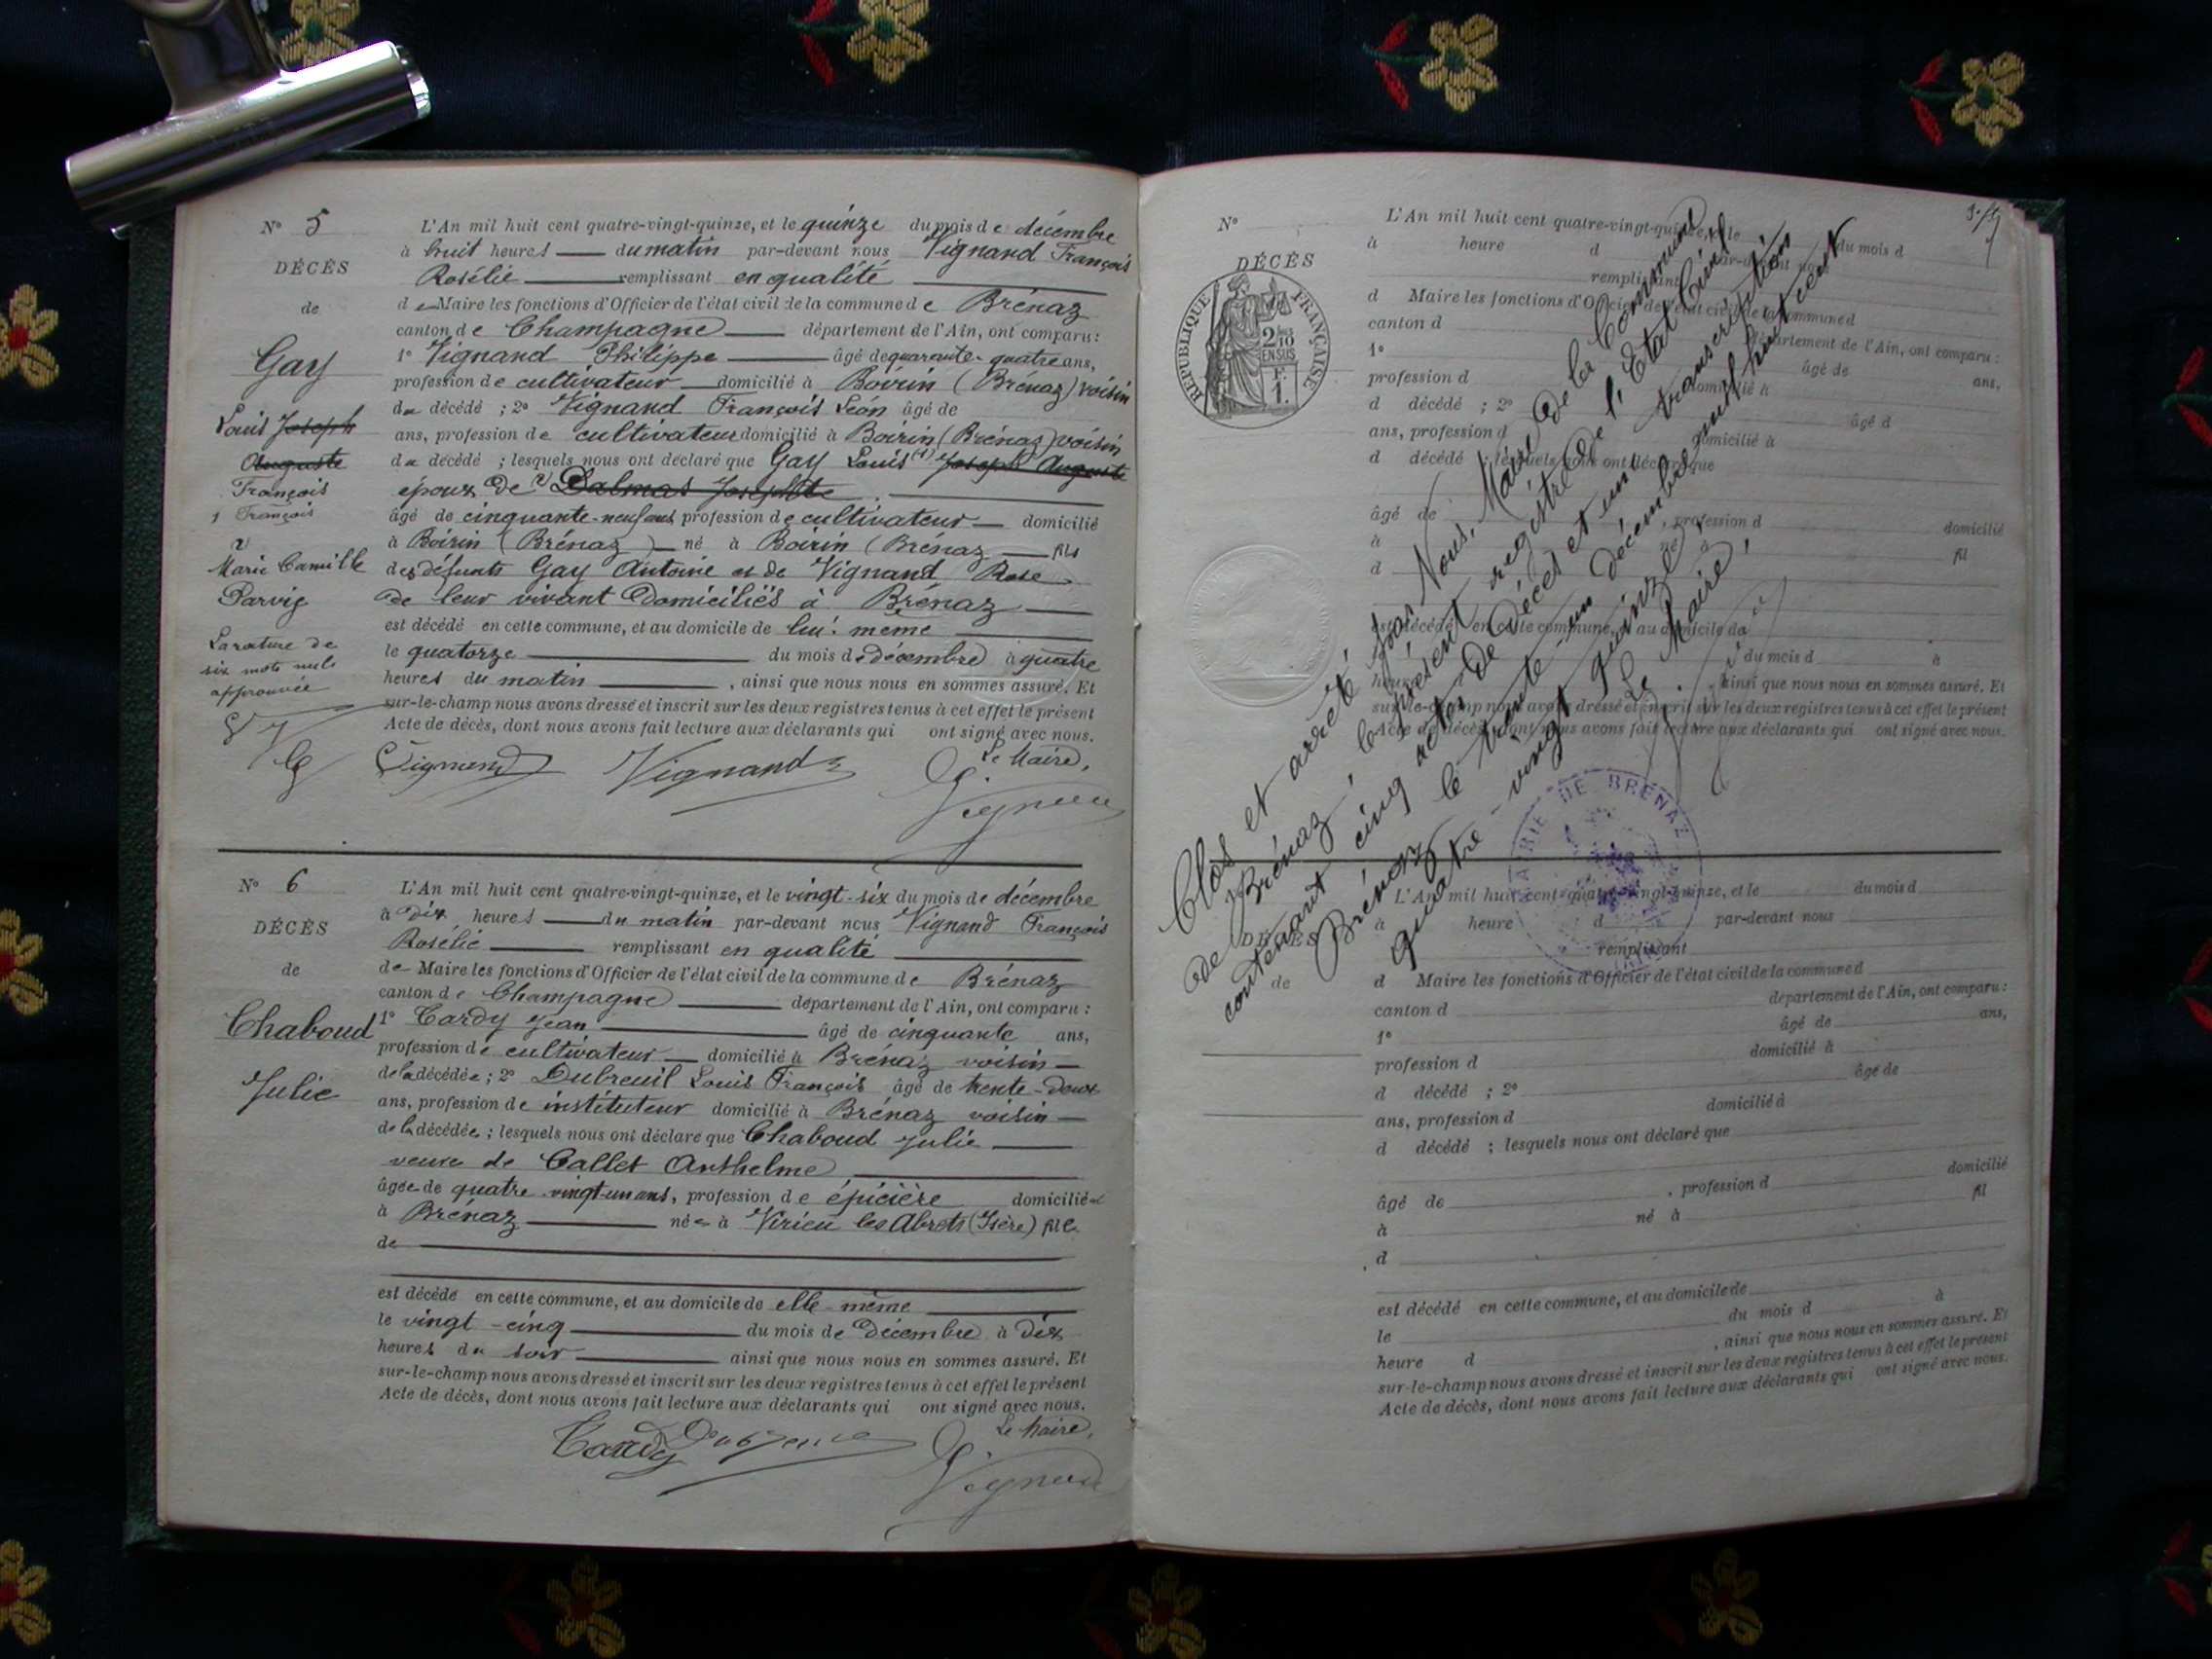 N° 5
DÉCÈS
de
Gay
Louis Joseph
Auguste
François
1 François
2
Marie Camille
Parvig
La rature de
six mots nuls
approuvée
L'An mil huit cent quatre-vingt-quinze, et le quinze du mois de décembre
à huit heures du matin par-devant nous Vignand François
Rosélie remplissant en qualité
de Maire les fonctions d'Officier de l'état civil de la commune de Brénaz
canton de Champagne département de l'Ain, ont comparu :
1° Vignand Philippe âgé de quarante-quatre ans,
profession de cultivateur domicilié à Boirin (Brénaz) voisin
du décédé ; 2° Vignand François Léon âgé de
ans, profession de cultivateur domicilié à Boirin (Brénaz) voisin
du décédé ; lesquels nous ont déclaré que Gay Louis (1) Joseph Auguste
époux de (2) Dalmas Josephte
âgé de cinquante-neuf ans, profession de cultivateur domicilié
à Boirin (Brénaz) né à Boirin (Brénaz fils
des défunts Gay Antoine et de Vignand Rose
de leur vivant domiciliés à Brénaz
est décédé en cette commune, et au domicile de lui-même
le quatorze du mois de décembre à quatre
heures du matin , ainsi que nous nous en sommes assuré. Et
sur-le-champ nous avons dressé et inscrit sur les deux registres tenus à cet effet le présent
Acte de décès, dont nous avons fait lecture aux déclarants qui ont signé avec nous.
Le Maire,
Vignand Vignand Vignand
N° 6
DÉCÈS
de
Chaboud
Julie
L'An mil huit cent quatre-vingt-quinze, et le vingt-six du mois de décembre
à dix heures du matin par-devant nous Vignand François
Rosélie remplissant en qualité
de Maire les fonctions d'Officier de l'état civil de la commune de Brénaz
canton de Champagne département de l'Ain, ont comparu :
1° Cardy Jean âgé de cinquante ans,
profession de cultivateur domicilié à Brénaz voisin
de la décédée ; 2° Dubreuil Louis François âgé de trente-deux
ans, profession de instituteur domicilié à Brénaz voisin
de la décédée ; lesquels nous ont déclaré que Chaboud Julie
veuve de Callet Anthelme
âgée de quatre-vingt-un ans, profession de épicière domiciliée
à Brénaz née à Virieu les Abrets (Isère) fille
de
est décédé en cette commune, et au domicile de elle-même
le vingt-cinq du mois de décembre à dix
heures du soir ainsi que nous nous en sommes assuré. Et
sur-le-champ nous avons dressé et inscrit sur les deux registres tenus à cet effet le présent
Acte de décès, dont nous avons fait lecture aux déclarants qui ont signé avec nous.
Le Maire,
Cardy Dubreuil Vignand
N°
DÉCÈS
RÉPUBLIQUE FRANÇAISE
2/10 EN SUS
F. 1.
L'An mil huit cent quatre-vingt-quinze, et le du mois d
à heure d par-devant nous
remplissant
d Maire les fonctions d'Officier de l'état civil de la commune d
canton d département de l'Ain, ont comparu :
1° âgé de ans,
profession d domicilié à
d décédé ; 2° âgé d
ans, profession d domicilié à
d décédé ; lesquels nous ont déclaré que
âgé de , profession d domicilié
à né à fil
d
est décédé en cette commune, et au domicile de
du mois d à
heure , ainsi que nous nous en sommes assuré. Et
sur-le-champ nous avons dressé et inscrit sur les deux registres tenus à cet effet le présent
Acte de décès, dont nous avons fait lecture aux déclarants qui ont signé avec nous.
Clos et arrêté par Nous, Maire de la Commune
de Brénaz, le présent registre de l'Etat Civil
contenant cinq actes de Décès et une transcription
Brénaz le trente-un décembre mil huit cent
quatre-vingt quinze,
Le Maire,
MAIRIE DE BRENAZ
DÉCÈS
de
L'An mil huit cent quatre-vingt-quinze, et le du mois d
à heure d par-devant nous
remplissant
d Maire les fonctions d'Officier de l'état civil de la commune d
canton d département de l'Ain, ont comparu :
1° âgé de ans,
profession d domicilié à
d décédé ; 2° âgé de
ans, profession d domicilié à
d décédé ; lesquels nous ont déclaré que
âgé de , profession d domicilié
à né à fil
d
est décédé en cette commune, et au domicile de
le du mois d à
heure d , ainsi que nous nous en sommes assuré. Et
sur-le-champ nous avons dressé et inscrit sur les deux registres tenus à cet effet le présent
Acte de décès, dont nous avons fait lecture aux déclarants qui ont signé avec nous.